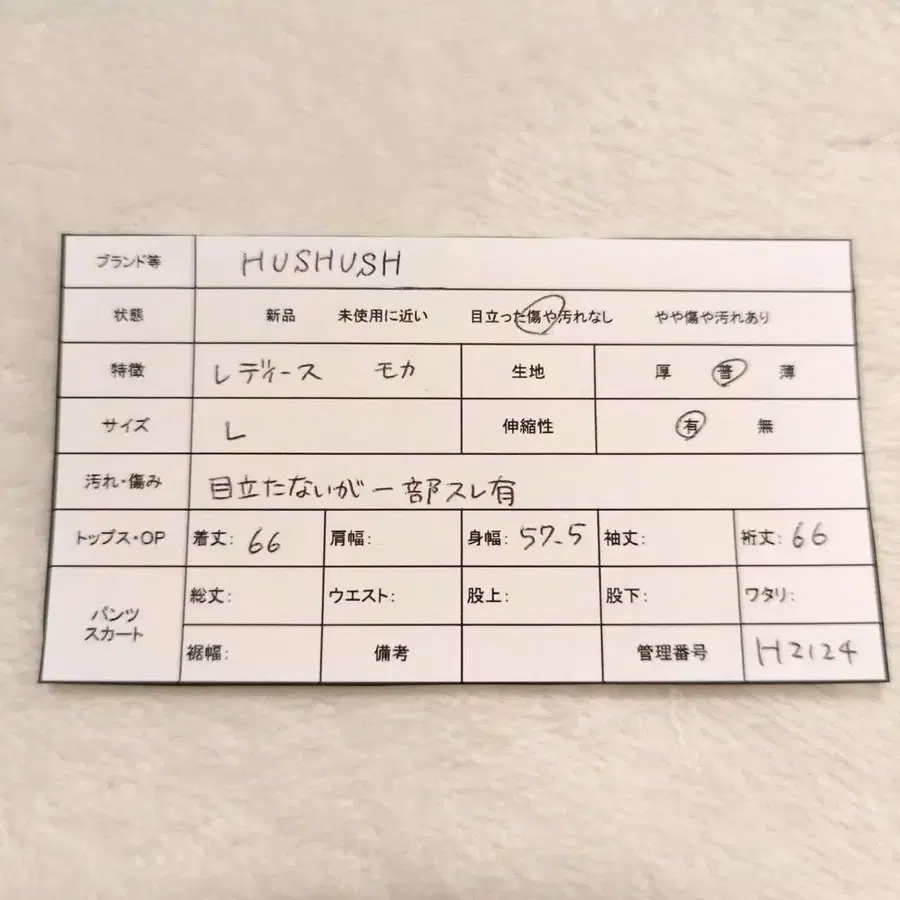 ブランド等 HUSHUSH
状態 新品 未使用に近い 目立った傷や汚れなし やや傷や汚れあり
特徴 レディース モカ 生地 厚 普 薄
サイズ L 伸縮性 有 無
汚れ・傷み 目立たないが一部スレ有
トップス・OP 着丈: 66 肩幅: 身幅: 57.5 袖丈: 裄丈: 66
パンツ スカート 総丈: ウエスト: 股上: 股下: ワタリ:
裾幅: 備考 管理番号 H2124